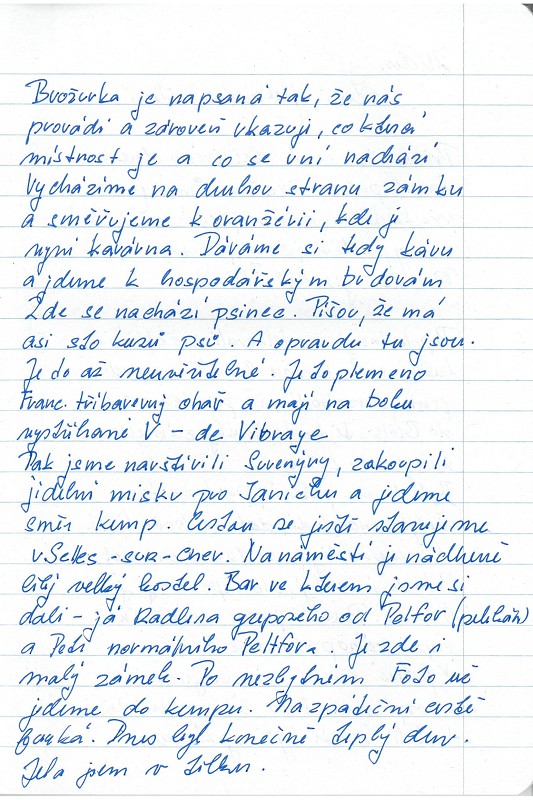 Brožurka je napsaná tak, že nás
provádí a zároveň ukazuji, co která
místnost je a co se v ní nachází
Vycházíme na druhou stranu zámku
a směřujeme k oranžérii, kde je
nyní kavárna. Dáváme si tedy kávu
a jdeme k hospodářským budovám
Zde se nachází psinec. Píšou, že má
asi sto kusů psů. A opravdu tu jsou.
Je to až neuvěřitelné. Je to plemeno
Franc. tříbarevný ohař a mají na boku
vystříhané V - de Vibraye
Pak jsme navštívili Suvenýry, zakoupili
jídelní misku pro Janičku a jedeme
směr kemp. Cestou se ještě stavujeme
v Selles-sur-Cher. Na náměstí je nádherně
bílý velký kostel. Bar ve kterem jsme si
dali - já Radlera od Pelfor (pelikán)
a Petr normálního Pelfora. Je zde i
malý zámek. Po nezbytném Foto už
jedeme do kempu. Na zpáteční cestě
fouká. Dnes byl konečně teplý den.
Jela jsem v tílku.